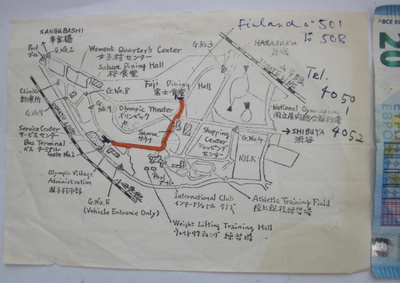 SANGUBASHI
参宮橋
G.No.2
Women's Quarter's Center
女子村センター
Sakura Dining Hall
桜食堂
G.No.3
Finland 501
to 508
HARAJUKU
原宿
Clinic
診療所
G.No.8
Fuji Dining Hall
富士食堂
Tel.
4050
4052
Olympic Theater
National Gymnasium
Service Center
サービスセンター
Bus Terminal
バス ターミナル
Gate No.1
Sauna
サウナ
Shopping Center
ショッピング
センター
G.No.4
N.H.K
→SHIBUYA
渋谷
Olympic Village
Administration
選手村本部
Pool
プール
G.No.5
(Vehicle Entrance Only)
International Club
インターナショナル クラブ
Athletic Training Field
陸上競技練習場
Weight Lifting Training Hall
ウェイトリフティング 練習場
20
EURO